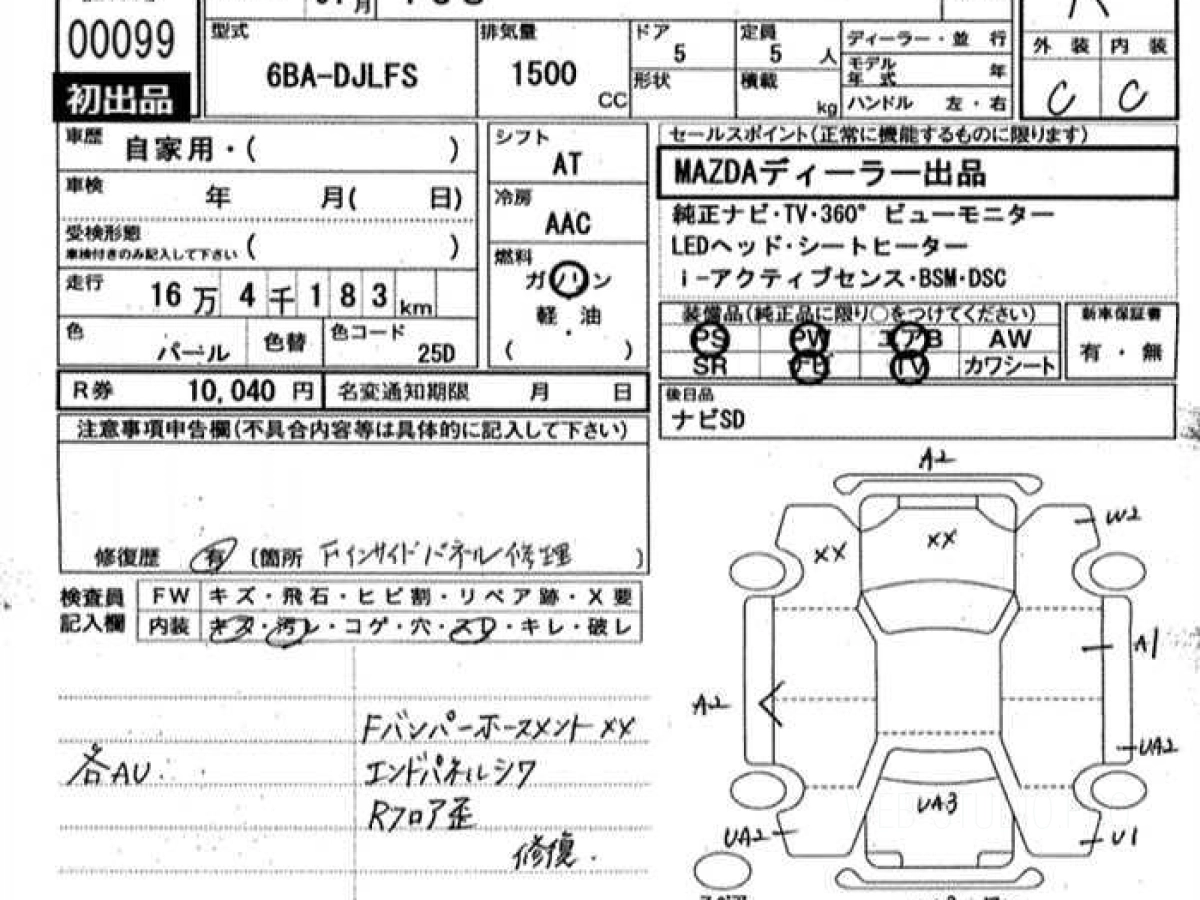 00099
初出品
型式
6BA-DJLFS
排気量
1500
CC
ドア
5
形状
定員
5 人
積載
kg
ディーラー・並 行
モデル
年 式 年
ハンドル 左・右
外 装 内 装
C C
車歴
自家用・( )
車検
年 月( 日)
受検形態
車検付きのみ記入して下さい ( )
走行
16万 4千183km
色
パール
色替
色コード
25D
シフト
AT
冷房
AAC
燃料
ガソリン
軽・油
( )
セールスポイント(正常に機能するものに限ります)
MAZDAディーラー出品
純正ナビ・TV・360° ビューモニター
LEDヘッド・シートヒーター
i-アクティブセンス・BSM・DSC
装備品(純正品に限り○をつけてください)
PS PW エアB AW
SR ナビ TV カワシート
新車保証書
有・無
R券 10,040 円
名変通知期限 月 日
後日品
ナビSD
注意事項申告欄(不具合内容等は具体的に記入して下さい)
修復歴 有 (箇所 Fインサイドパネル修理 )
検査員
記入欄
FW キズ・飛石・ヒビ割・リペア跡・X要
内装 キズ・汚レ・コゲ・穴・スレ・キレ・破レ
FバンパーホースメントXX
各AU.
エンドパネルシワ
Rフロア歪
修復.
A2
W2
XX
XX
A1
A2
UA2
UA3
UA2
U1